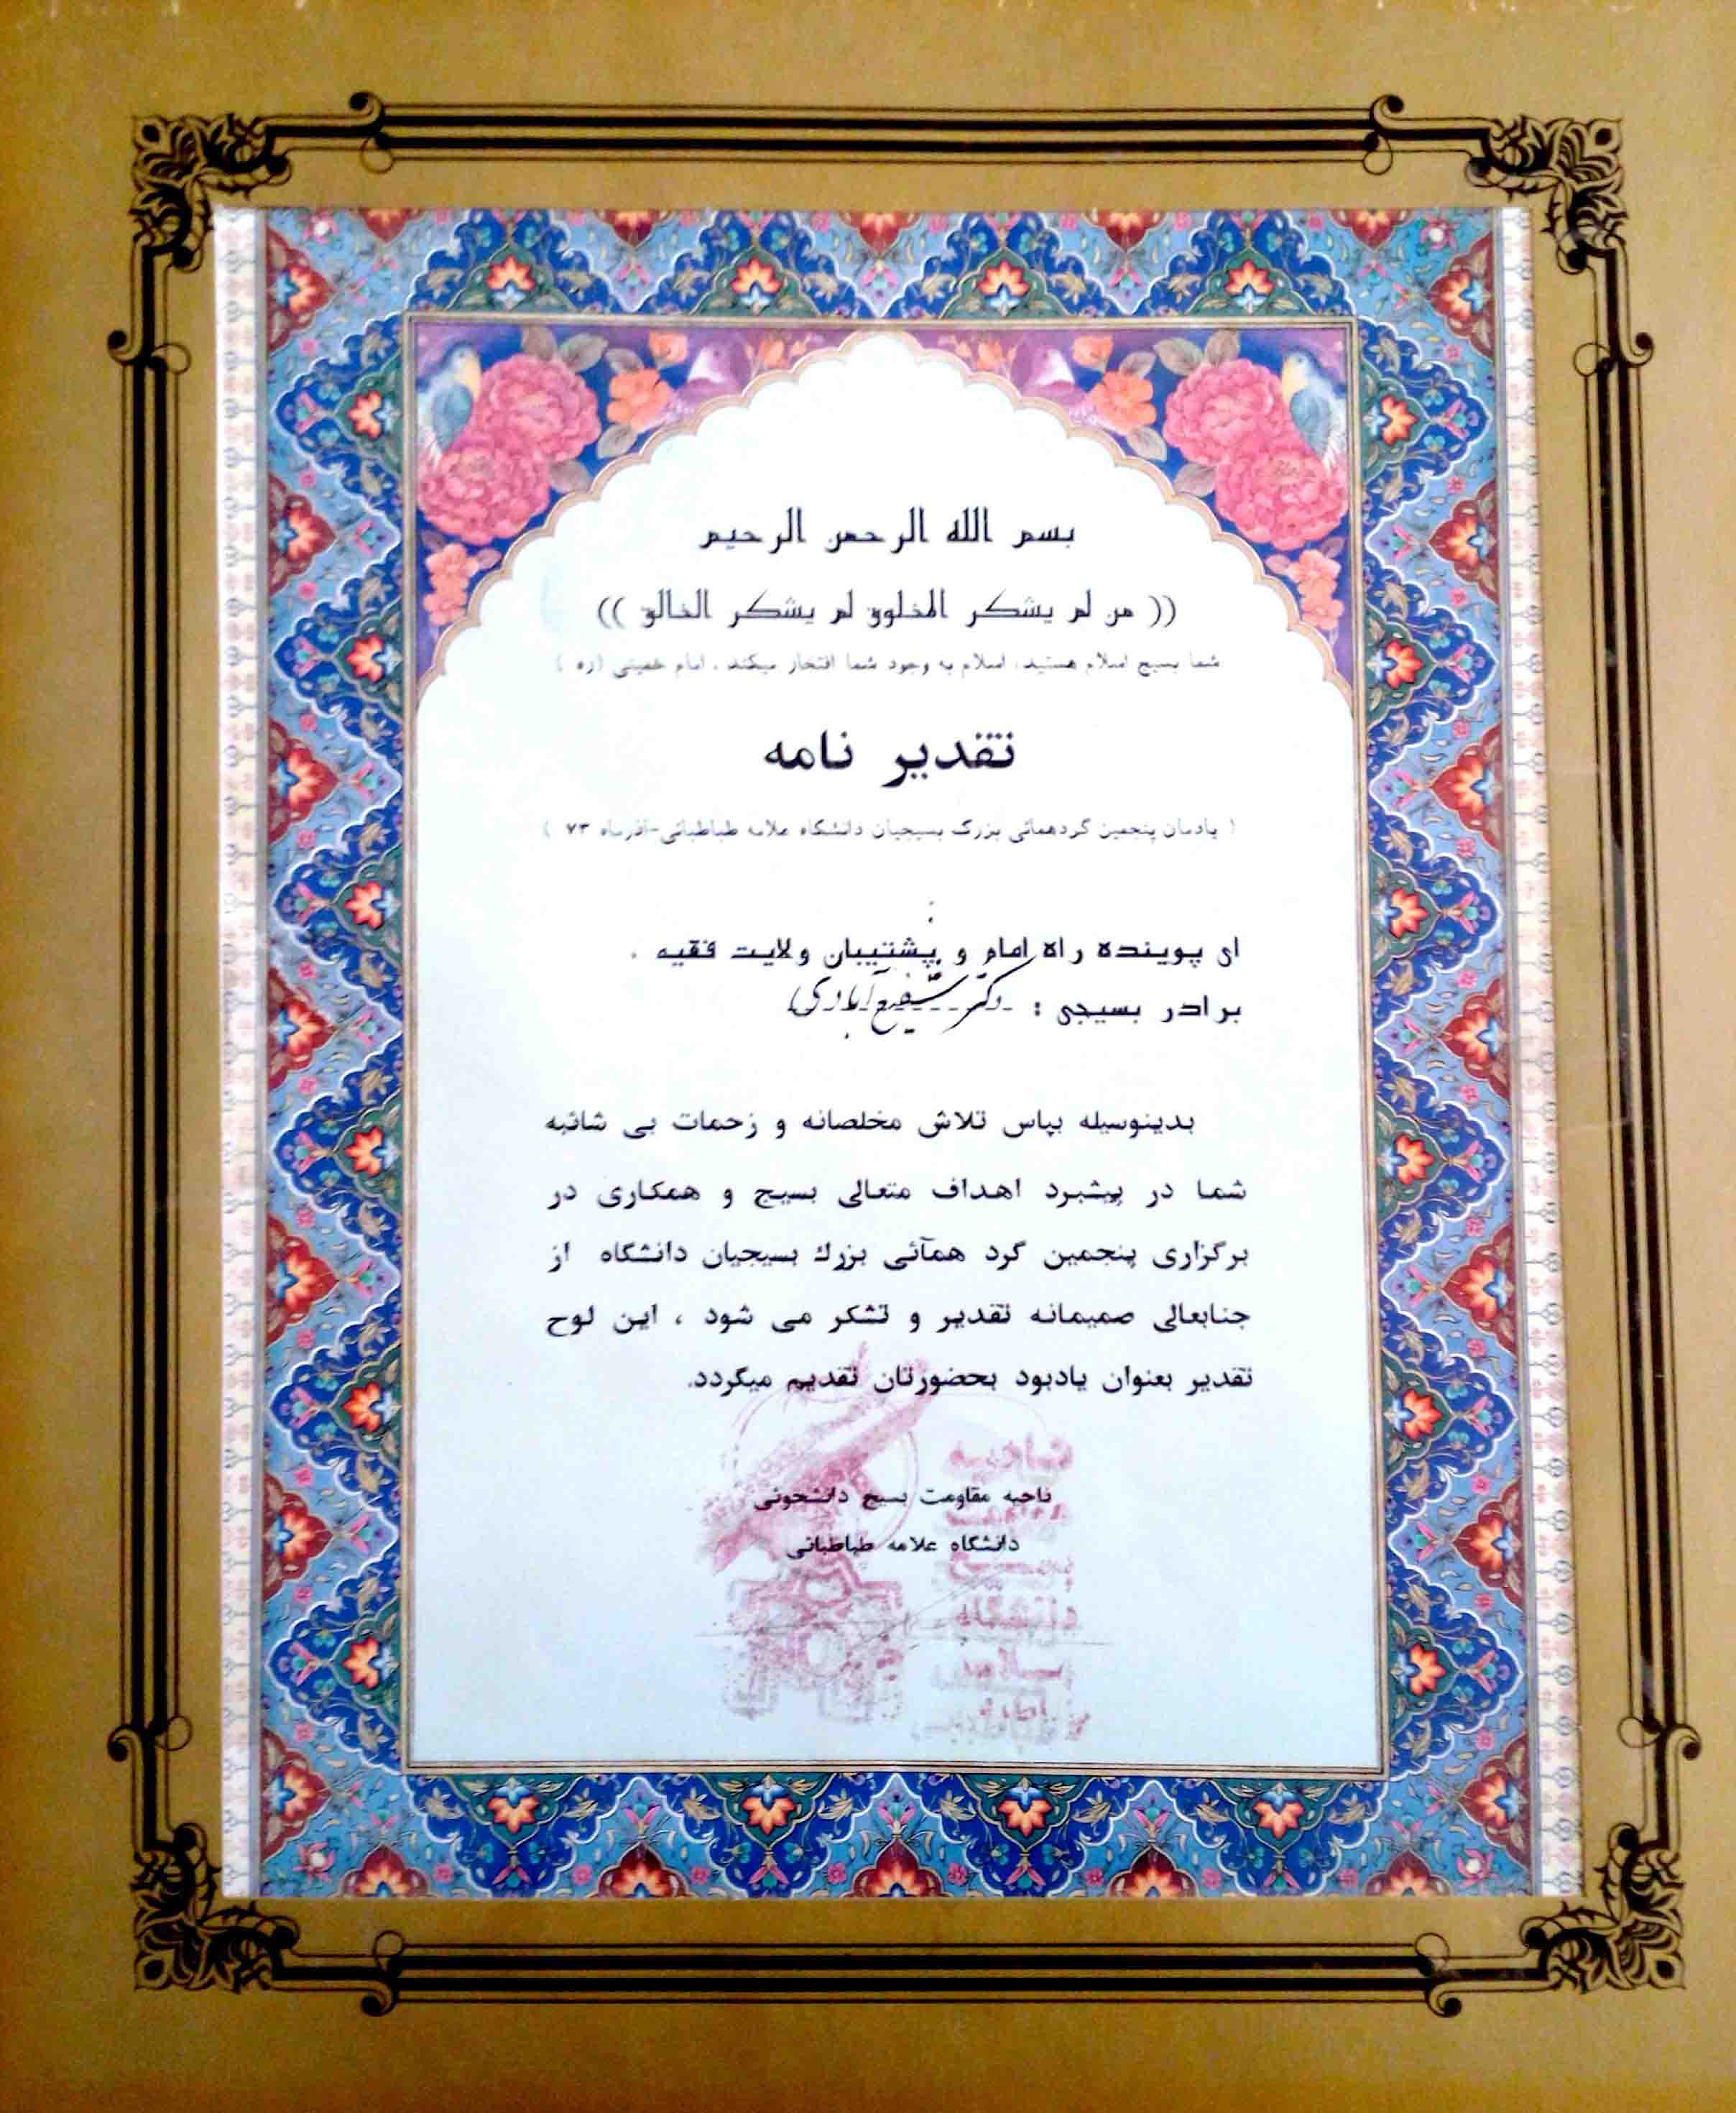 بسم الله الرحمن الرحیم
(( من لم یشکر المخلوق لم یشکر الخالق ))
شما بسیج اسلام هستید، اسلام به وجود شما افتخار میکند . امام خمینی (ره )
تقدیر نامه
( یادمان پنجمین گردهمائی بزرگ بسیجیان دانشگاه علامه طباطبائی-آذرماه ۷۳ )
ای پوینده راه امام و پشتیبان ولایت فقیه .
برادر بسیجی : دکتر شفیع آبادی
بدینوسیله بپاس تلاش مخلصانه و زحمات بی شائبه
شما در پیشبرد اهداف متعالی بسیج و همکاری در
برگزاری پنجمین گرد همآئی بزرك بسیجیان دانشگاه از
جنابعالی صمیمانه تقدیر و تشکر می شود ، این لوح
تقدیر بعنوان یادبود بحضورتان تقدیم میگردد.
ناحیه مقاومت بسیج دانشجوئی
دانشگاه علامه طباطبائی